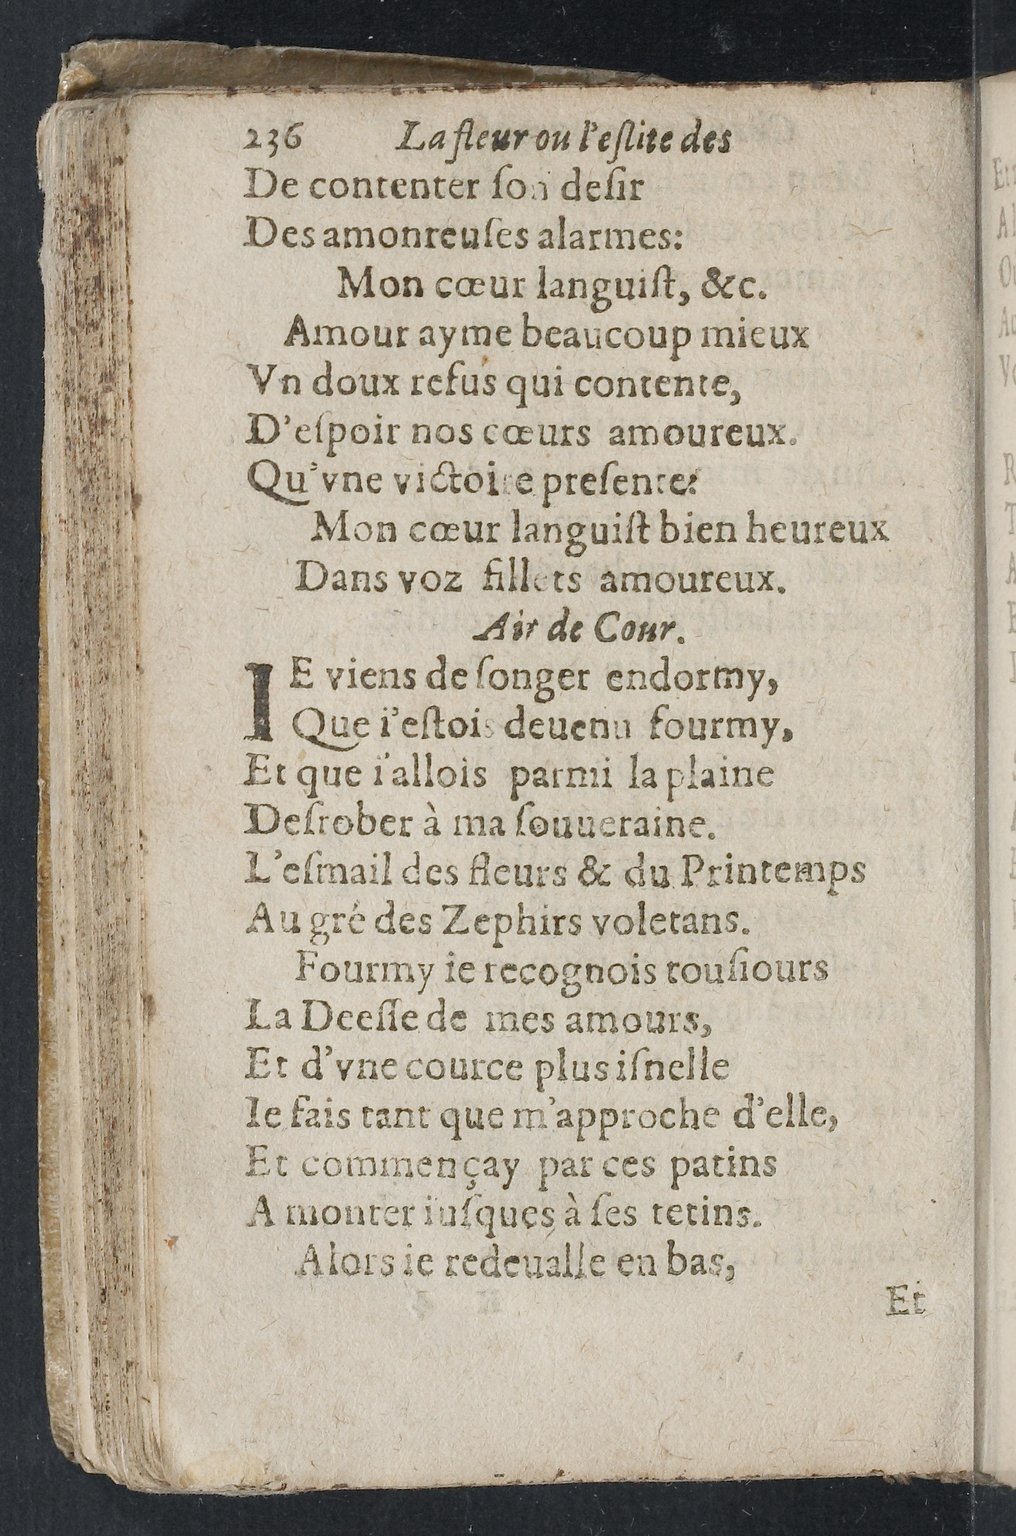 236 La fleur ou l'eſlite des
De contenter ſon deſir
Des amonreuſes alarmes:
Mon cœur languiſt, &c.
Amour ayme beaucoup mieux
Vn doux refus qui contente,
D'eſpoir nos cœurs amoureux.
Qu'vne victoire preſente:
Mon cœur languiſt bien heureux
Dans voz fillets amoureux.
Air de Cour.
IE viens de ſonger endormy,
Que i'eſtois deuenu fourmy,
Et que i'allois parmi la plaine
Deſrober à ma ſouueraine.
L'eſmail des fleurs & du Printemps
Au gré des Zephirs voletans.
Fourmy ie recognois touſiours
La Deeſſe de mes amours,
Et d'vne cource plus iſnelle
Ie fais tant que m'approche d'elle,
Et commençay par ces patins
A monter iuſques à ſes tetins.
Alors ie redeualle en bas,
Et